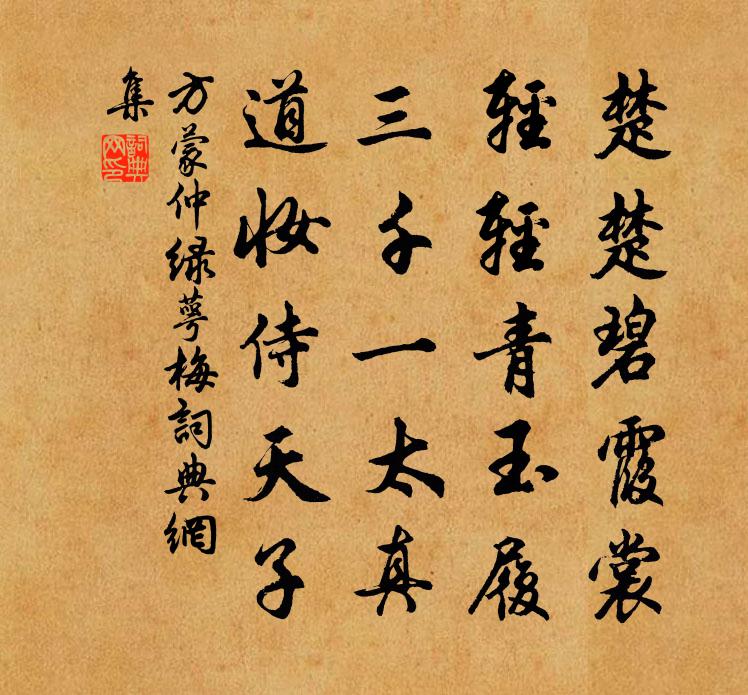 楚楚碧霞裳
輕輕青玉履
三千一太真
道妝侍天子
方蒙仲緑萼梅詞典網
集
詞典網印